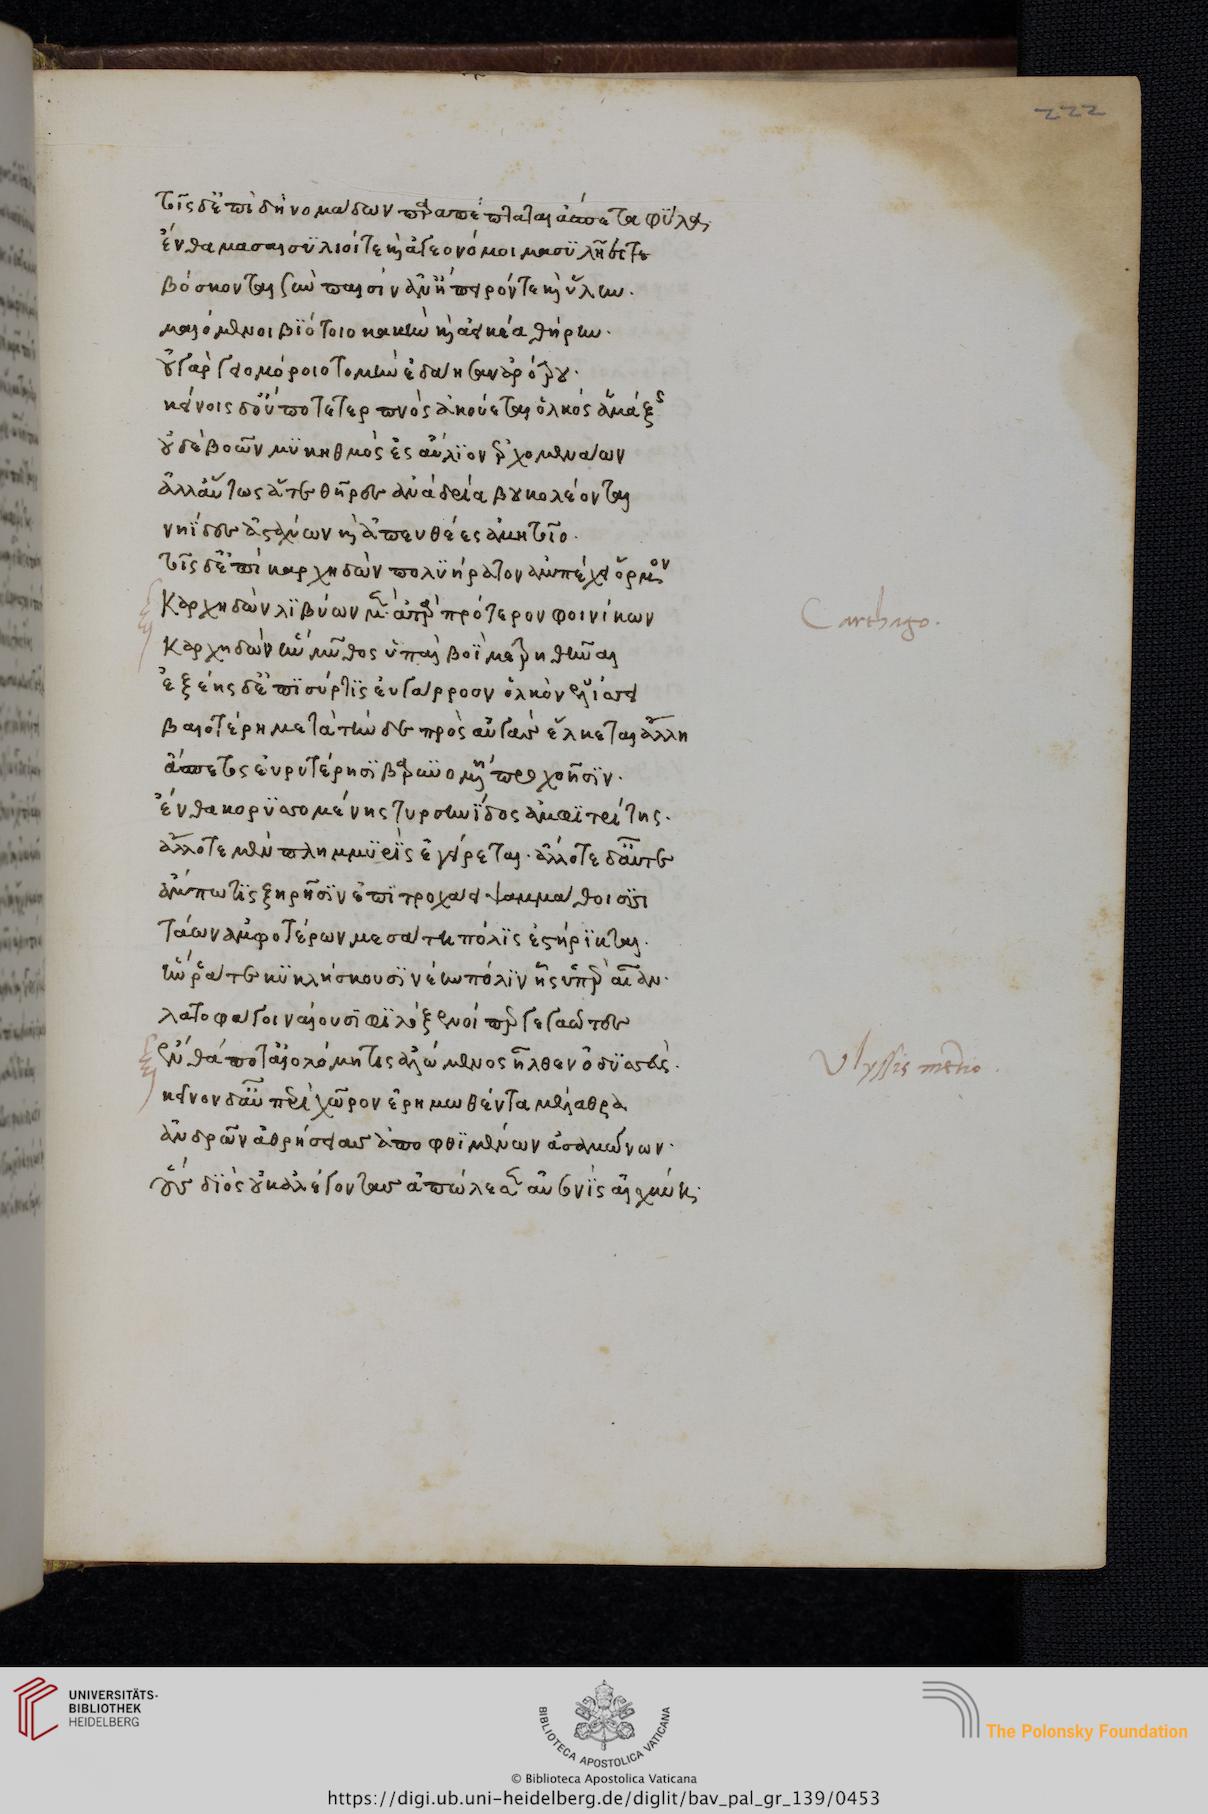 222
τοῖς δ' ἐπὶ δὴ νομάδων παραπέπταται ἄσπετα φῦλα,
ἔνθα μασαισύλιοί τε καὶ ἀγρονόμοι μασυλῆές τε
βόσκονται σὺν παισὶν ἀν' ἤπειρόν τε καὶ ὕλην.
μαιόμενοι βιότοιο κακὴν καὶ ἀεικέα θήρην.
οὐ γὰρ γειομόροιο τομὴν ἐδάησαν ἀρότρου.
κείνοις δ' οὔποτε τερπνὸς ἀκούεται ὁλκὸς ἁμάξης
οὐδὲ βοῶν μυκηθμὸς ἐς αὔλιον ἐρχομενάων
ἀλλ' αὔτως ἅτε θῆρες ἀνὰ δρία βουκολέονται
νηΐδες ἀσταχύων καὶ ἀπευθέες ἀμητοῖο.
τοῖς δ' ἐπὶ καρχηδὼν πολυήρατον ἀμπέχει ὅρμον
Καρχηδὼν λιβύων μέν. ἀτὰρ πρότερον φοινίκων
Καρχηδὼν ἣν μῦθος ὑπαὶ βοῒ μετρηθῆναι
ἑξείης δ' ἐπὶ σύρτις ἐϋγάρροον ὁλκὸν ἑλίσσει
βαιοτέρη μετὰ τὴν δὲ πρὸς αὐγὰς ἕλκεται ἄλλη
ἄσπετος εὐρυτέρῃσι βαρυνομένη προχοῇσιν.
ἔνθα κορυσσομένης τυρσηνίδος ἀμφιτρίτης.
ἄλλοτε μὲν πλημμυρὶς ἐγείρεται. ἄλλοτε δ' αὖτε
ἄμπωτις ξηρῇσιν ἐπιτροχάει ψαμμάθοισι
τάων ἀμφοτέρων μεσάτη πόλις ἐστήρικται.
ἥν ῥά τε κικλήσκουσι νέην πόλιν ἧς ὑπὲρ αἶαν.
λωτοφάγοι ναίουσι φιλόξενοι
ἔνθά ποτ' αἰολόμητις ἀλώμενος ἦλθεν ὀδυσσεύς.
κεῖνον δ' ἂν περὶ χῶρον ἐρημωθέντα μέλαθρα
ἀνδρῶν ἀθρήσειας ἀποφθιμένων
οὓς διὸς οὐκ ἀλέγοντας ἀπώλεσεν αὐσονὶς αἰχμή.
Carthago.
Ulyssis
UNIVERSITÄTS-
BIBLIOTHEK
HEIDELBERG
BIBLIOTECA APOSTOLICA VATICANA
© Biblioteca Apostolica Vaticana
The Polonsky Foundation
https://digi.ub.uni-heidelberg.de/diglit/bav_pal_gr_139/0453